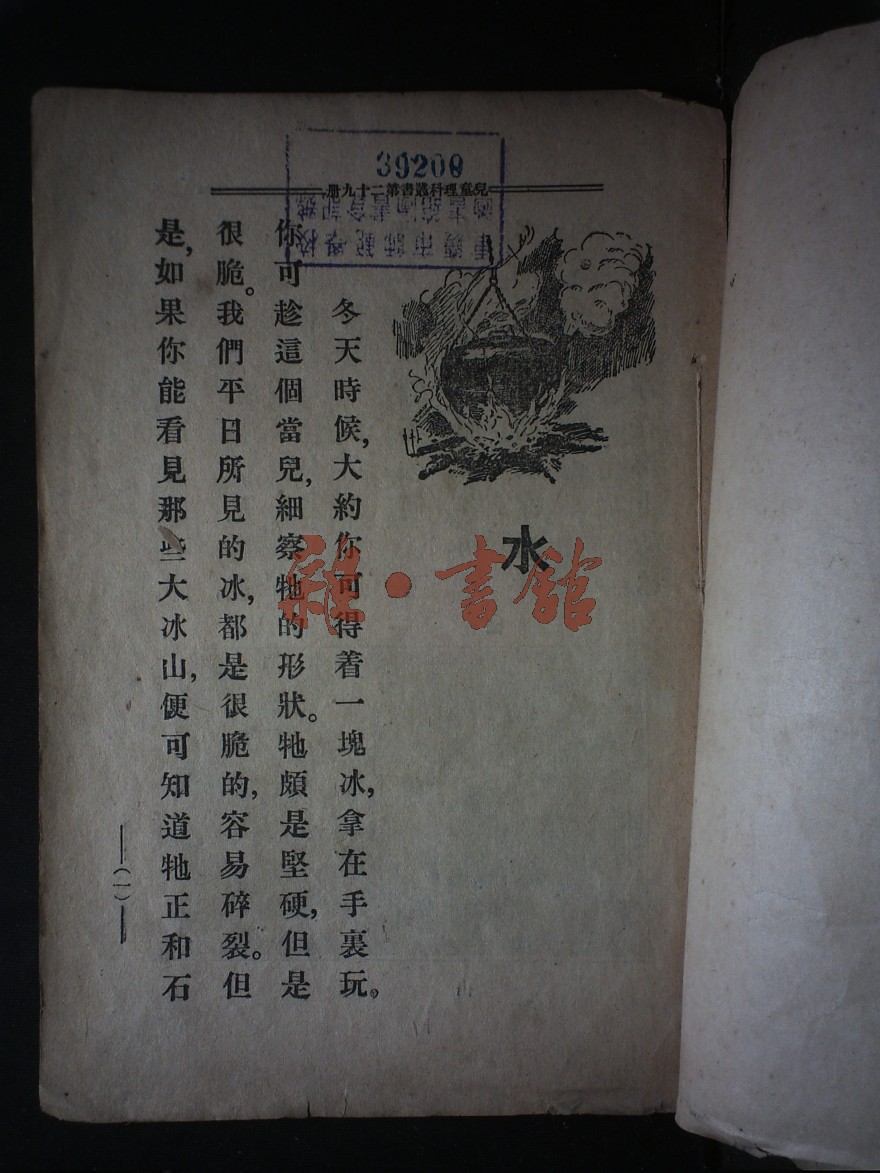 39200
兒童理科叢書第二十九册
水
冬天時候,大約你可得着一塊冰,拿在手裏玩。
你可趁這個當兒,細察牠的形狀。牠頗是堅硬,但是
很脆。我們平日所見的冰,都是很脆的,容易碎裂。但
是,如果你能看見那些大冰山,便可知道牠正和石
(一)
雜·書館